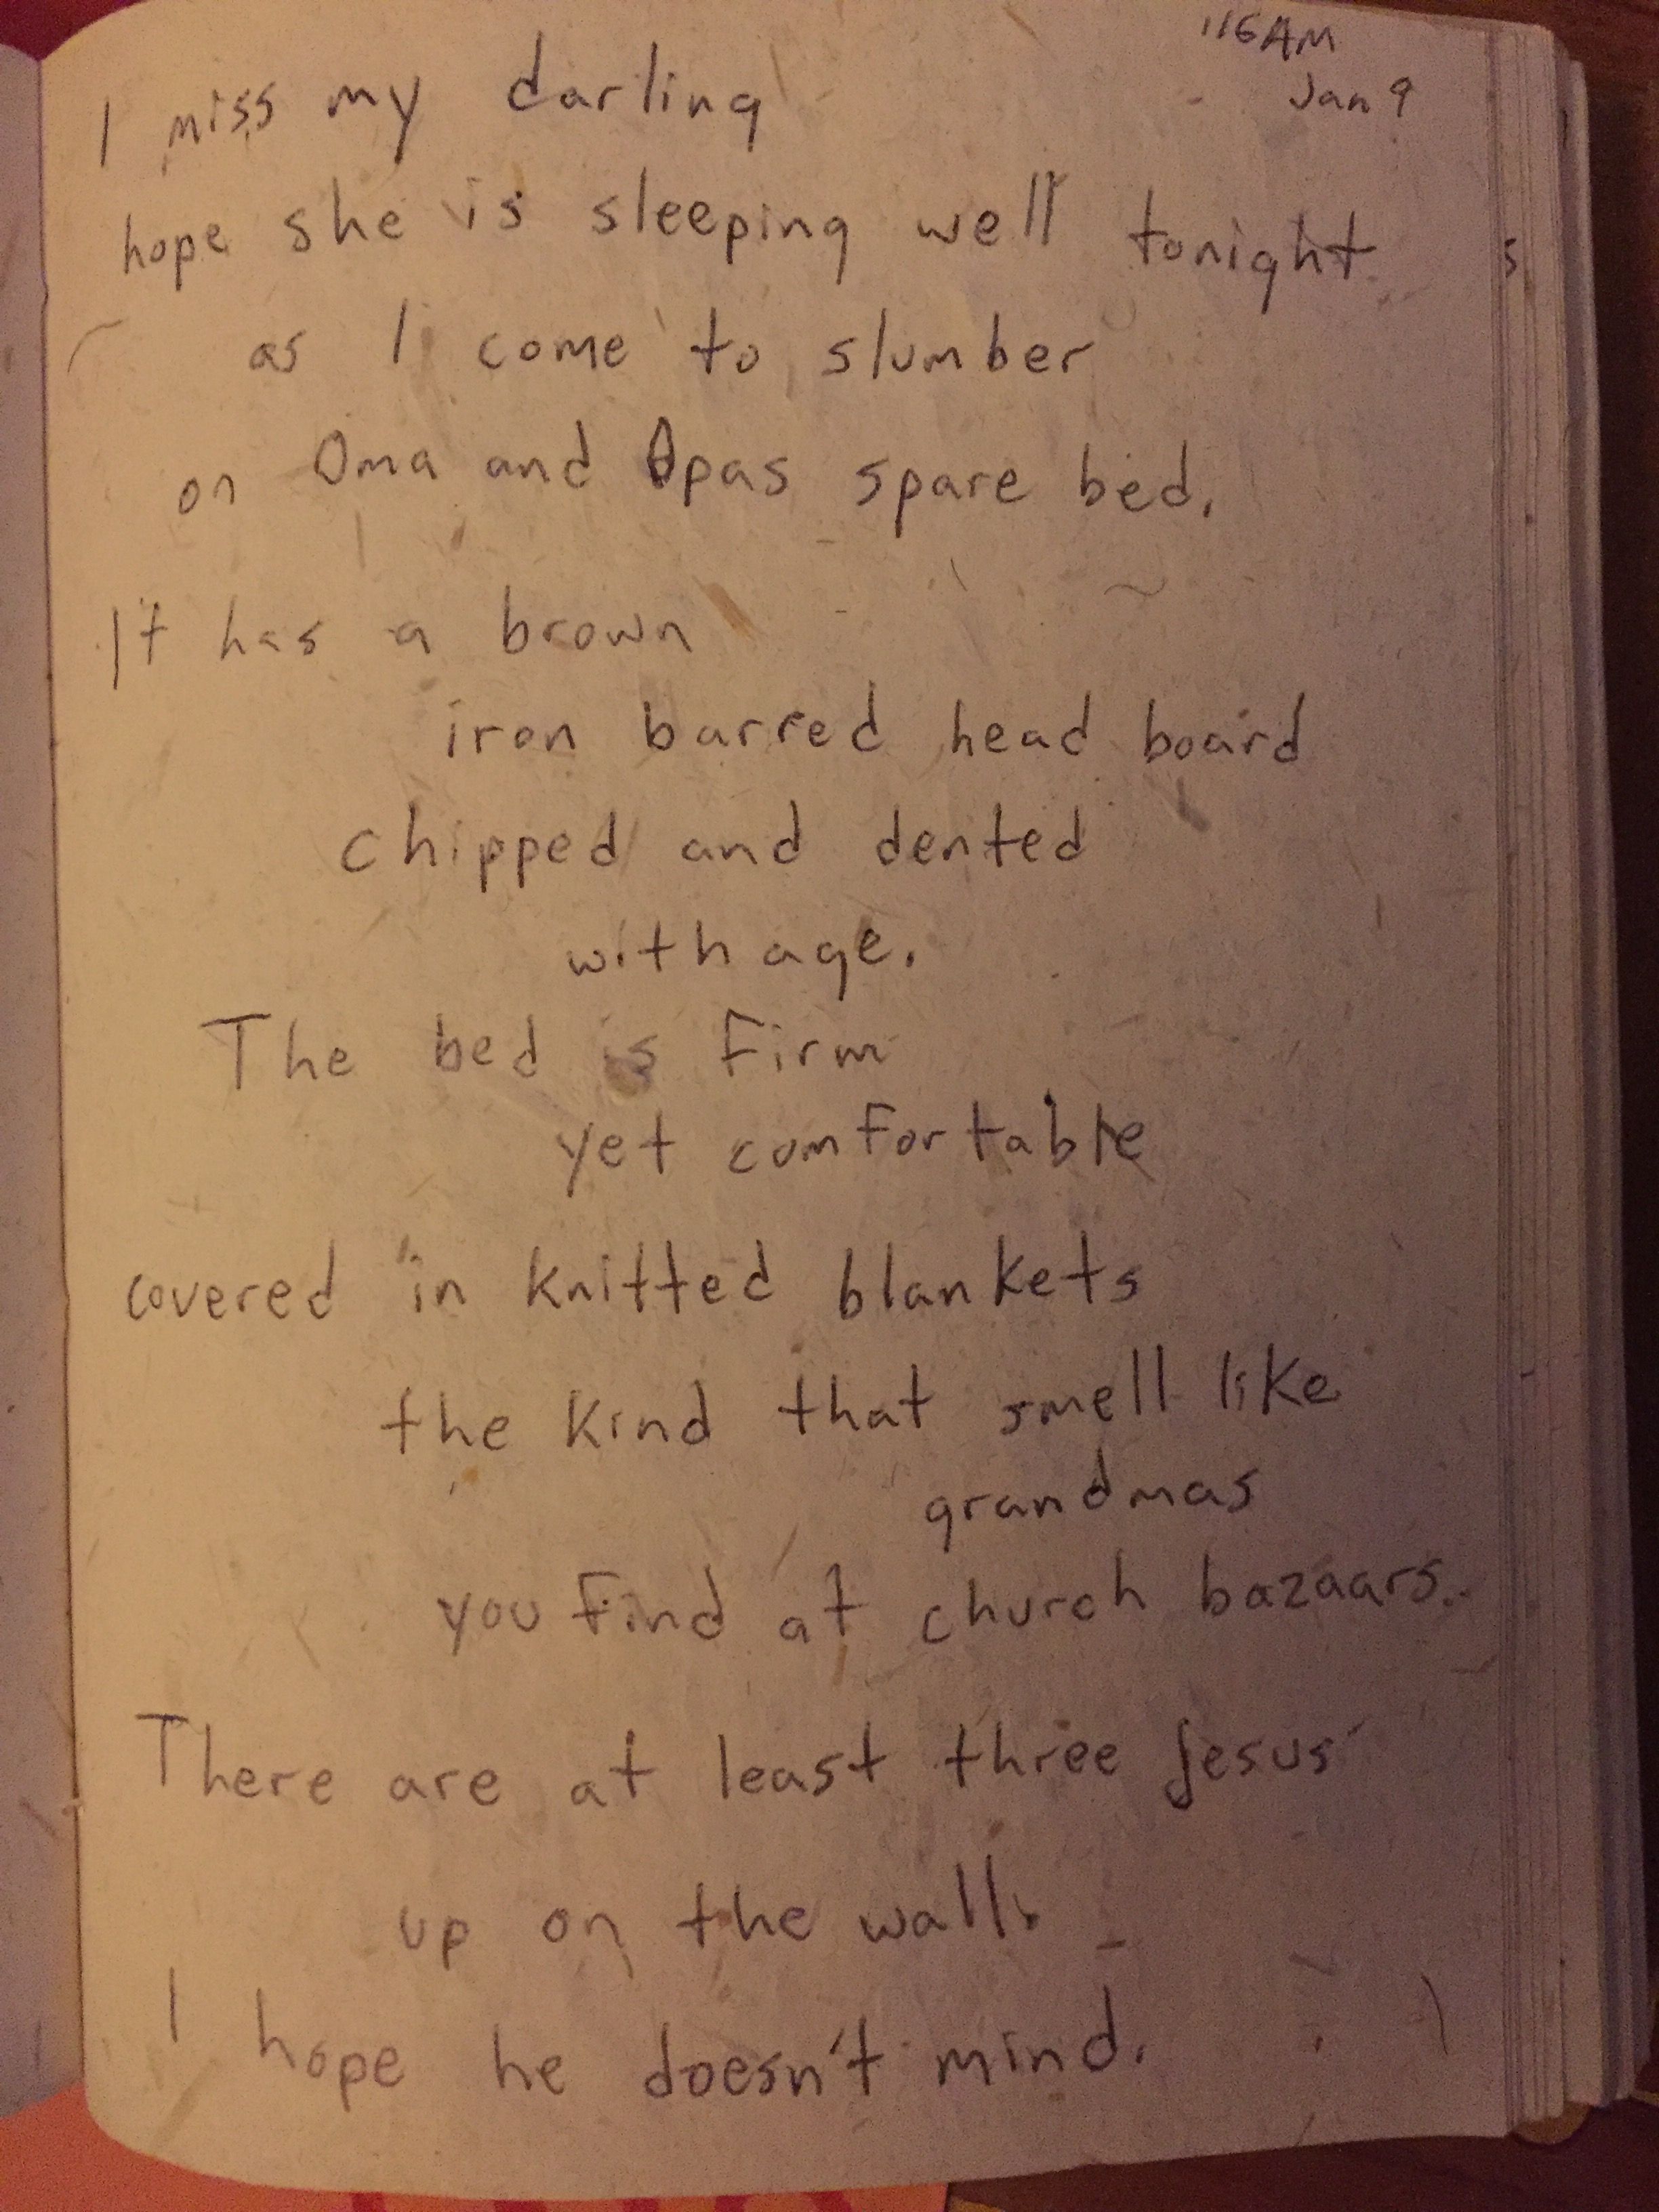 1:16 AM
Jan 9
I miss my darling
hope she is sleeping well tonight
as I come to slumber
on Oma and Opas spare bed.
It has a brown
iron barred head board
chipped and dented
with age.
The bed is firm
yet comfortable
covered in knitted blankets
the kind that smell like
grandmas
you find at church bazaars.
There are at least three Jesus'
up on the wall.
I hope he doesn't mind.